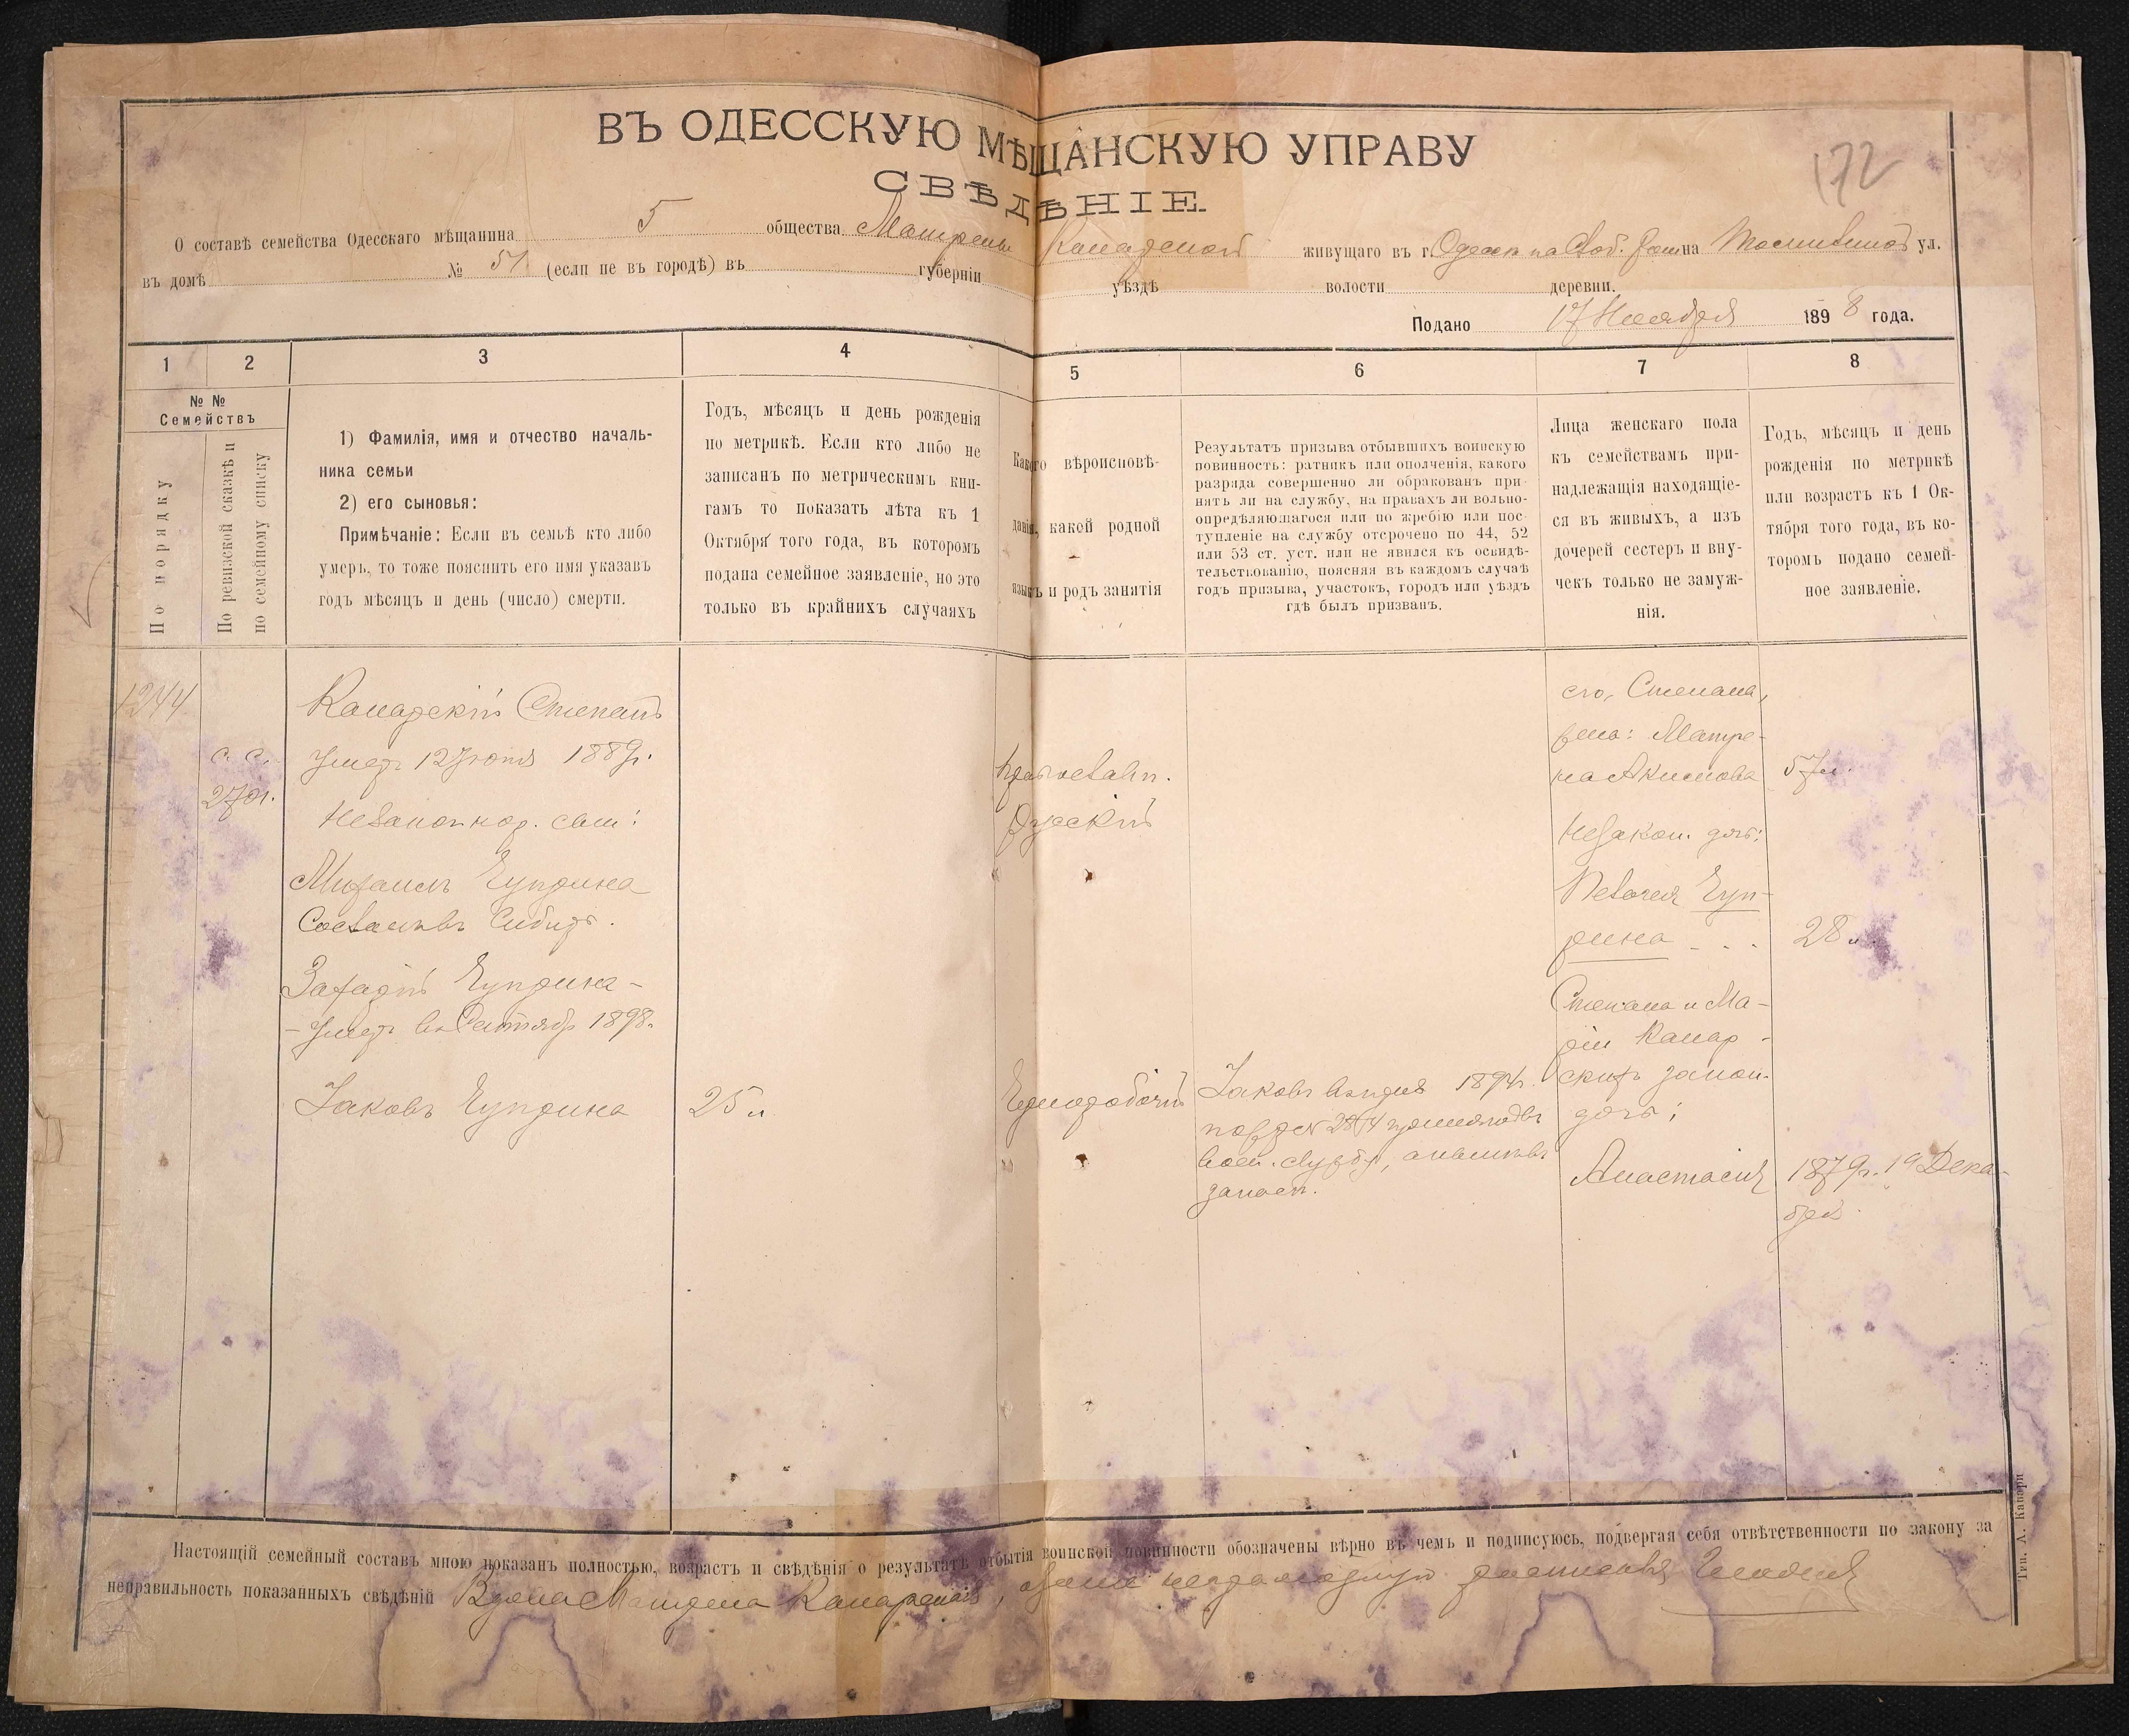 172
ВЪ ОДЕССКУЮ МѢЩАНСКУЮ УПРАВУ
СВѢДѢНІЕ.
О составѣ семейства Одесскаго мѣщанина 5 общества Матрены Канарской живущаго въ г. Одессѣ на Слоб. Ром на ул.
въ домѣ № 51 (если не въ городѣ) въ губерніи уѣздѣ волости деревни.
Подано 17 Ноября 1898 года.
1 2 3 4 5 6 7 8
№ №
Семействъ
По порядку
По ревизской сказкѣ и
по семейному списку
1) Фамилія, имя и отчество началь-
ника семьи
2) его сыновья:
Примѣчаніе: Если въ семьѣ кто либо
умеръ, то тоже пояснить его имя указавъ
годъ мѣсяцъ и день (число) смерти.
Годъ, мѣсяцъ и день рожденія
по метрикѣ. Если кто либо не
записанъ по метрическимъ кни-
гамъ то показать лѣта къ 1
Октября того года, въ которомъ
подана семейное заявленіе, но это
только въ крайнихъ случаяхъ
Какого вѣроисповѣ-
данія, какей родной
языкъ и родъ занятія
Результатъ призыва отбывшихъ воинскую
повинность: ратникъ или ополченія, какого
разряда совершенно ли обракованъ при-
нятъ ли на службу, на правахъ ли вольно-
опредѣляющагося или по жребію или пос-
тупленіе на службу отсрочено по 44, 52
или 53 ст. уст. или не явился къ освидѣ-
тельствованію, поясняя въ каждомъ случаѣ
годъ призыва, участокъ, городъ или уѣздъ
гдѣ былъ призванъ.
Лица женскаго пола
къ семействамъ при-
надлежащія находящіе-
ся въ живыхъ, а изъ
дочерей сестеръ и вну-
чекъ только не замуж-
нія.
Годъ, мѣсяцъ и день
рожденія по метрикѣ
или возрастъ къ 1 Ок-
тября того года, въ ко-
торомъ подано семей-
ное заявленіе.
1244
с. с.
270
Канарскій Степанъ
умеръ 12 1889г.
Незаконнор. сын:
Михаилъ Чуприна
Сосланъ въ Сибирь.
Захарій Чуприна -
- умеръ въ Сентябрѣ 1898.
Іаковъ Чуприна
25 л
Православн.
Русскій
Чернорабочій
Іаковъ 1894г.
по № 284
воен. службу,
запасъ.
его, Степана,
жена: Матре-
на Акимова 57 л.
Незакон. дочь:
Пелагея Чуп-
рина - . . 28 л.
Степана и Ма-
ріи Канар-
скихъ закон.
дочь;
Анастасія 1879г. 19 Дека-
бря
Настоящій семейный составъ мною показанъ полностью, возрастъ и свѣдѣнія о результатѣ отбытія воинской повинности обозначены вѣрно въ чемъ и подписуюсь, подвергая себя отвѣтственности по закону за
неправильность показанныхъ свѣдѣній Вдова Матрена Канарская, неграмотную
Тип. А. Канари